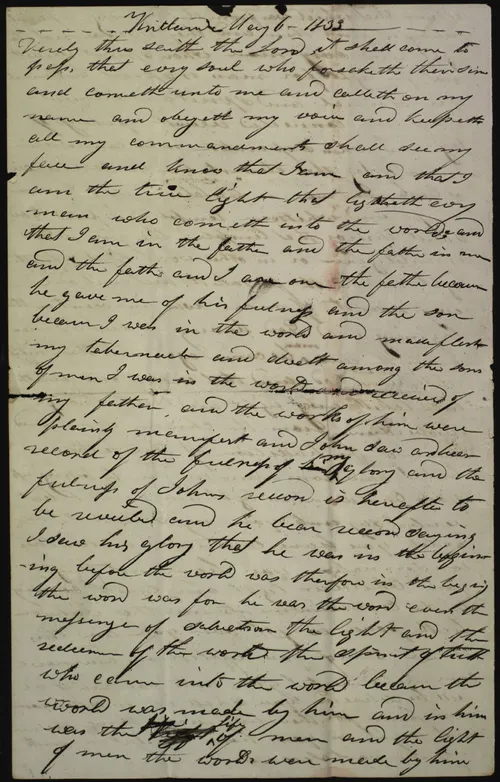 Kirtland May 6 1833
Verely thus saith the Lord it shall come to
pass that evry soul who forsaketh their sins
and cometh unto me and calleth on my
name and obeyeth my voice and keepeth
all my commandments shall see my
face and know that I am and that I
am the true light that lighteth evry
man who cometh into the world and
that I am in the father and the father in me
and the father and I are one the father because
he gave me of his fulness and the son
because I was in the world and made flesh
my tabernacle and dwelt among the sons
of men I was in the world and received of
my father, and the works of him were
plainly manifest and John saw and bear
record of the fulness of my glory and the
fulness of Johns record is hereafter to
be revealed and he bear record saying
I saw his glory that he was in the beginn
-ing before the world was therefore in the begin
the word was for he was the word even the
messenger of salvation the light and the
redeemer of the world the spirit of truth
who came into the world because the
world was made by him and in him
was the life of men and the light
of men the worlds were made by him